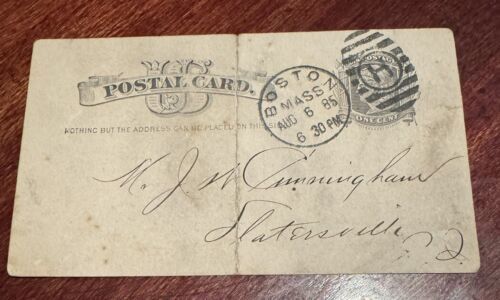 U S
POSTAL CARD.
NOTHING BUT THE ADDRESS CAN BE PLACED ON THIS SIDE
BOSTON
MASS
AUG 6 85
6 30 PM
POSTAGE
ONE CENT
M. J. W. Cunningham
Slatersville
R. I.